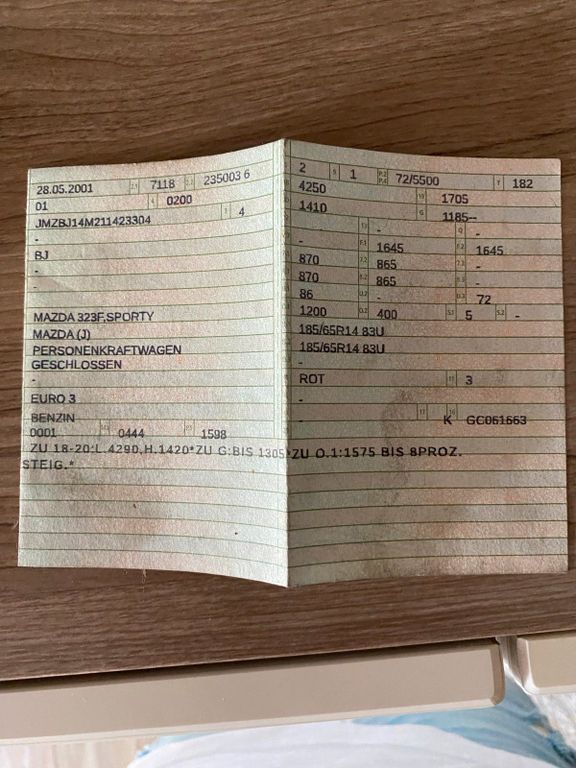 28.05.2001 7118 235003 6
01 0200
JMZBJ14M211423304 4
-
BJ
-
-
MAZDA 323F,SPORTY
MAZDA (J)
PERSONENKRAFTWAGEN
GESCHLOSSEN
-
EURO 3
BENZIN
0001 0444 1598
ZU 18-20:L.4290,H.1420*ZU G:BIS 1305*ZU O.1:1575 BIS 8PROZ.
STEIG.*
2 1 P.2 P.4 72/5500 T 182
4250 1705
1410 G 1185--
- Q -
- F.1 1645 F.2 1645
870 7.2 865 7.3 -
870 8.2 865 8.3 -
86 U.2 - U.3 72
1200 O.2 400 S.1 5 S.2 -
185/65R14 83U
185/65R14 83U
-
ROT 3
-
- 17 K 16 GC061663